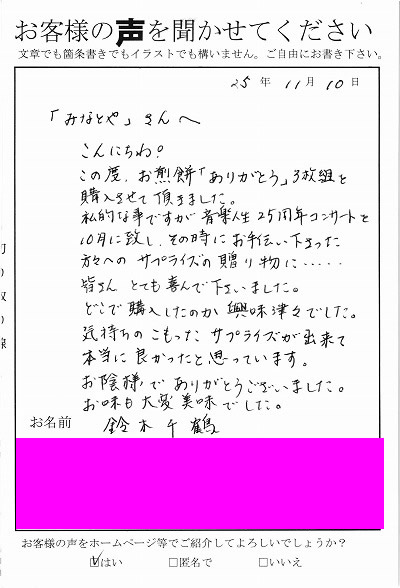 お客様の声を聞かせてください
文章でも箇条書きでもイラストでも構いません。ご自由にお書き下さい。
25年 11月 10日
「みなとや」さんへ
こんにちわ?
この度、お煎餅「ありがとう」3枚組を
購入させて頂きました。
私的な事ですが音楽人生25周年コンサートを
10月に致し、その時にお手伝い下さった
方々への サプライズの贈り物に・・・・・
皆さん とても喜んで下さいました。
どこで購入したのか 興味津々でした。
気持ちのこもった サプライズが出来て
本当に良かったと思っています。
お陰様で ありがとうございました。
お味も大変美味でした。
お名前 鈴木千鶴
お客様の声をホームページ等でご紹介してよろしいでしょうか?
☑はい □匿名で □いいえ